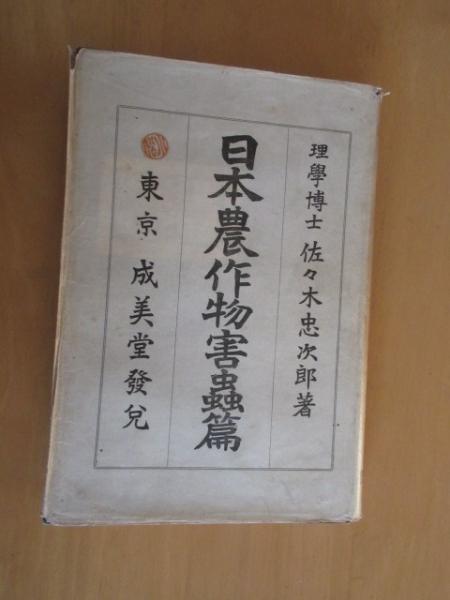 理學博士 佐々木忠次郎著
日本農作物害蟲篇
東京 成美堂發兌